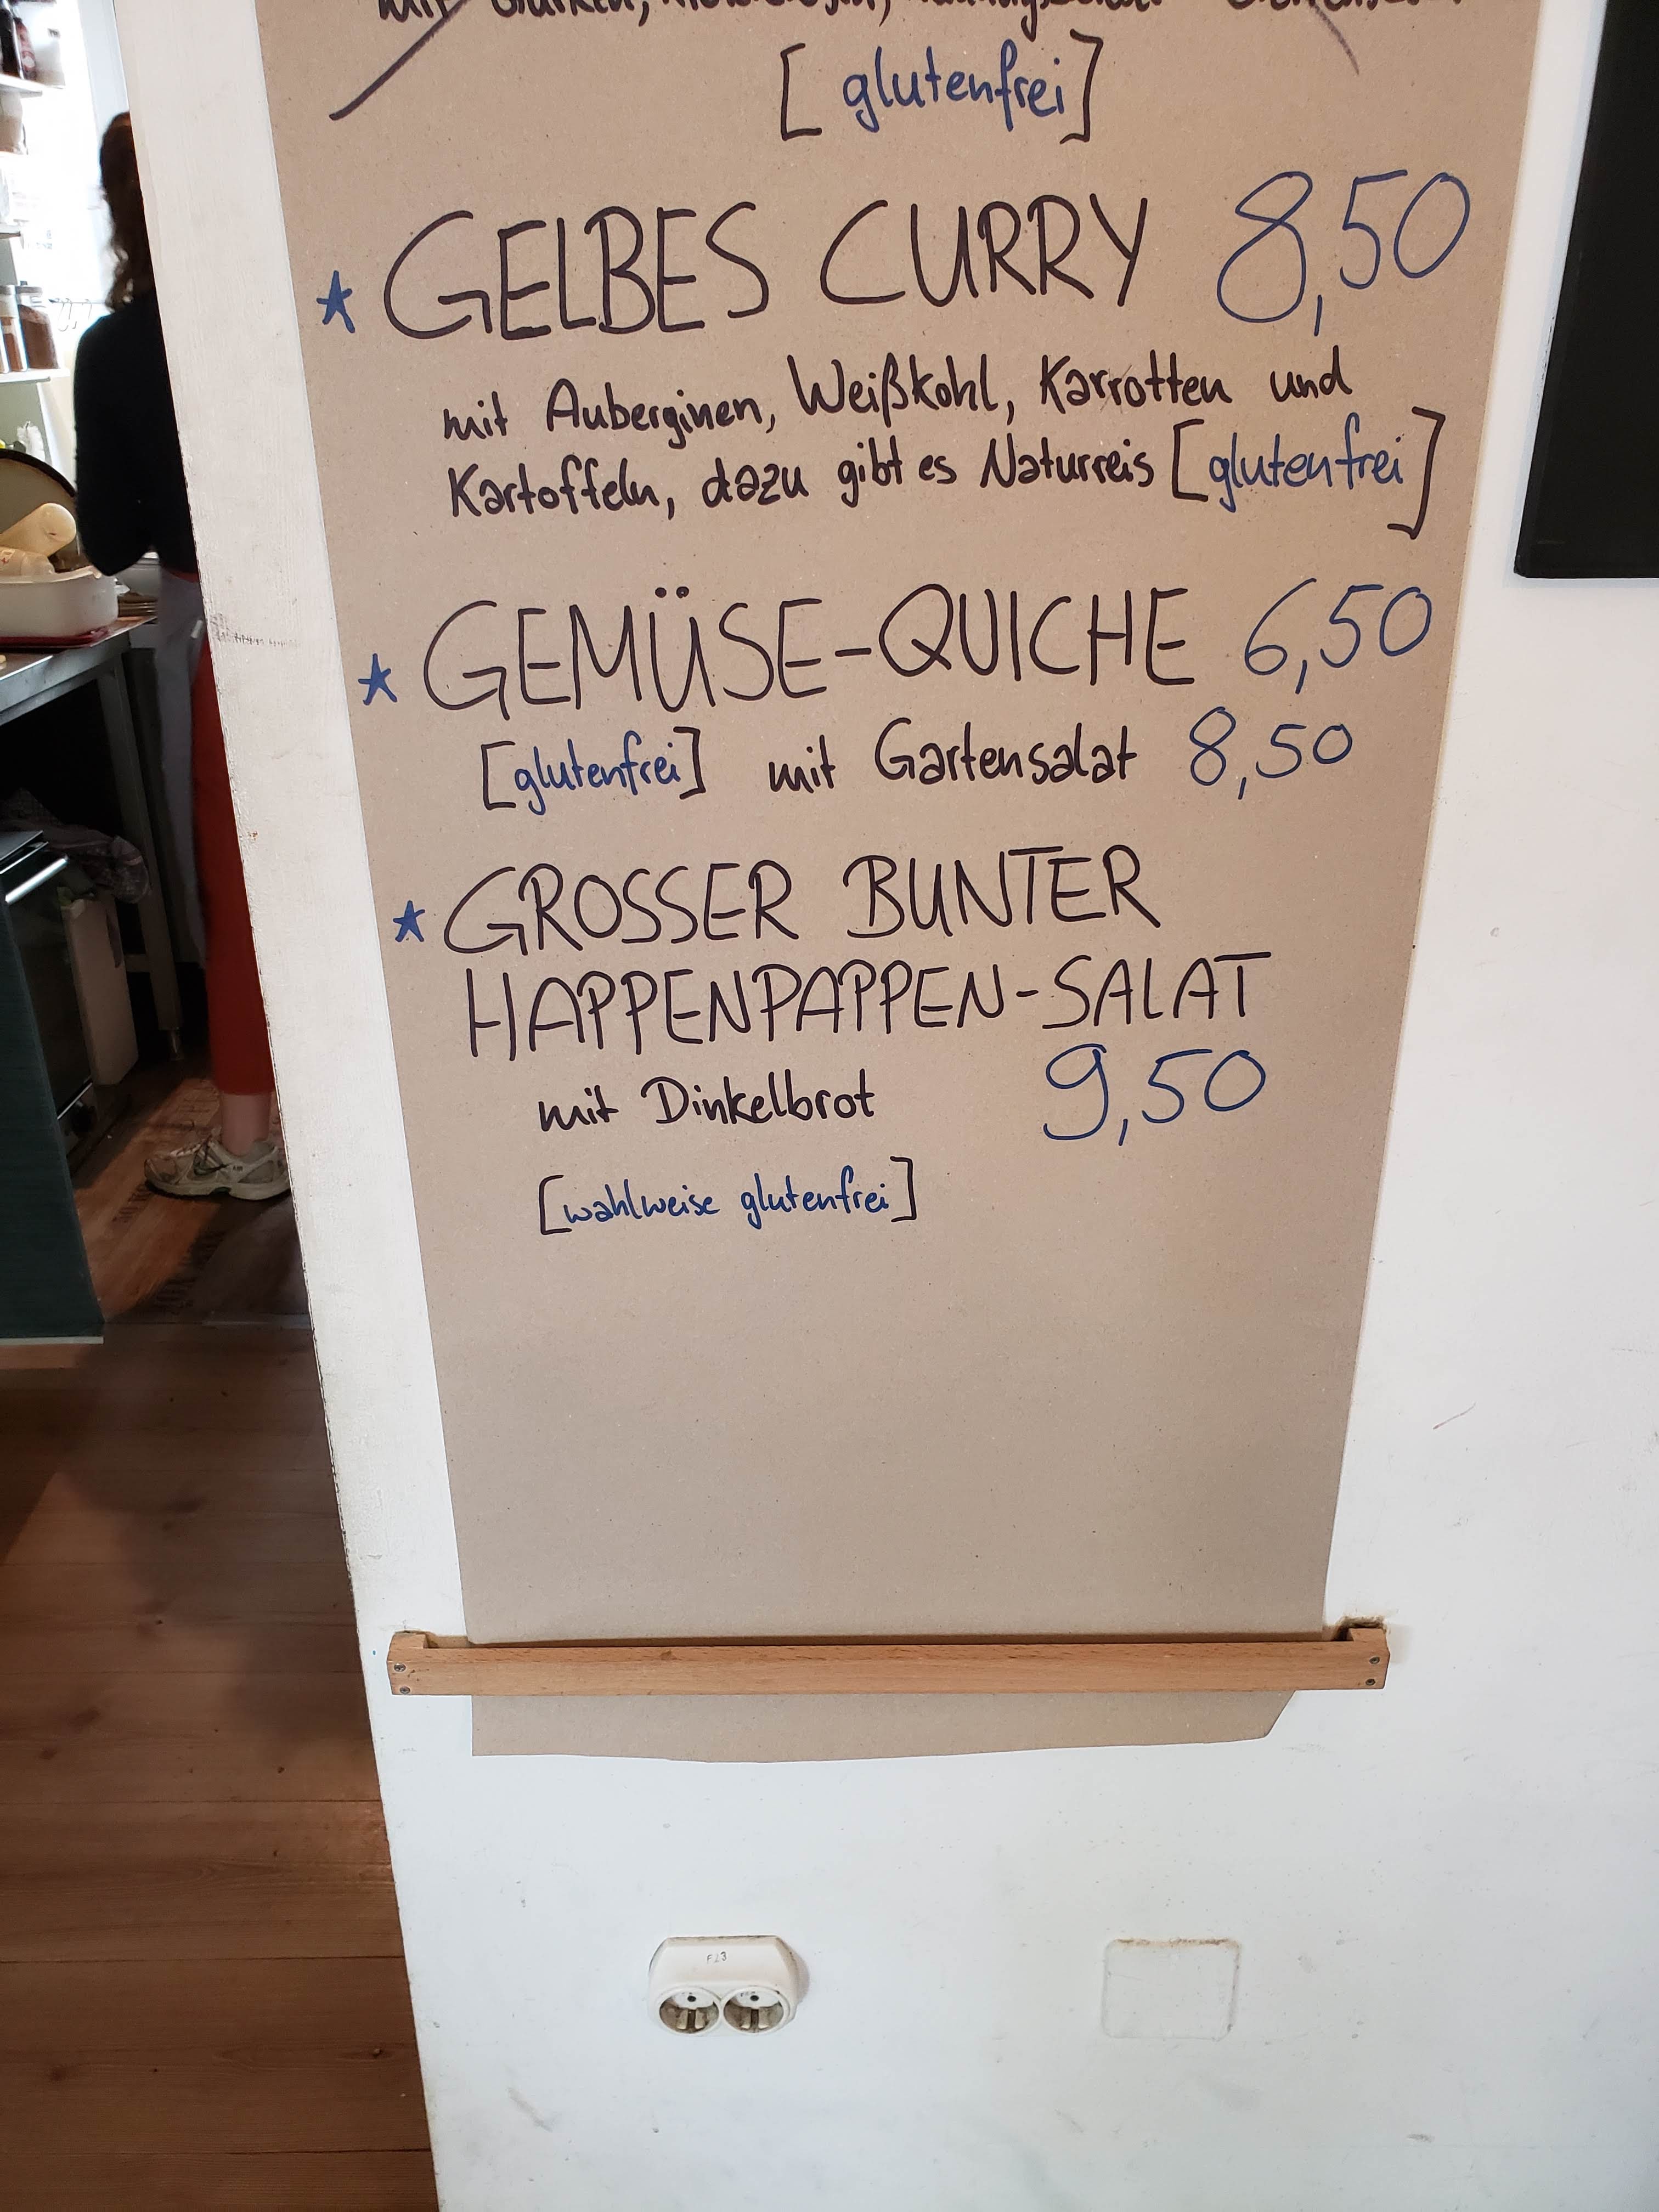 mit Gurken,
[glutenfrei]
★ GELBES CURRY 8,50
mit Auberginen, Weißkohl, Karrotten und
Kartoffeln, dazu gibt es Naturreis [glutenfrei]
★ GEMÜSE-QUICHE 6,50
[glutenfrei] mit Gartensalat 8,50
★ GROSSER BUNTER
HAPPENPAPPEN-SALAT
mit Dinkelbrot 9,50
[wahlweise glutenfrei]